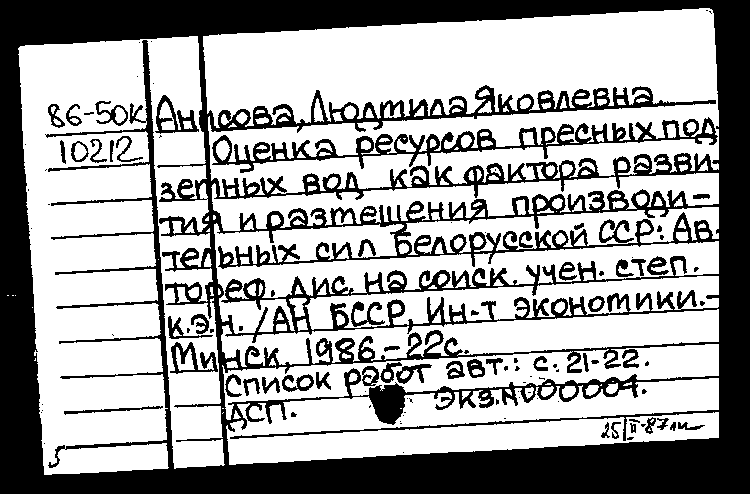 86-50к Анисова, Людмила Яковлевна.
10212 Оценка ресурсов пресных под-
земных вод как фактора разви-
тия и размещения производи-
тельных сил Белорусской ССР: Ав-
тореф. дис. на соиск. учен. степ.
к.э.н. /АН БССР, Ин-т экономики.-
Минск, 1986.-22с.
Список работ авт.: с. 21-22.
ДСП. Экз.N000004.
25/II-87